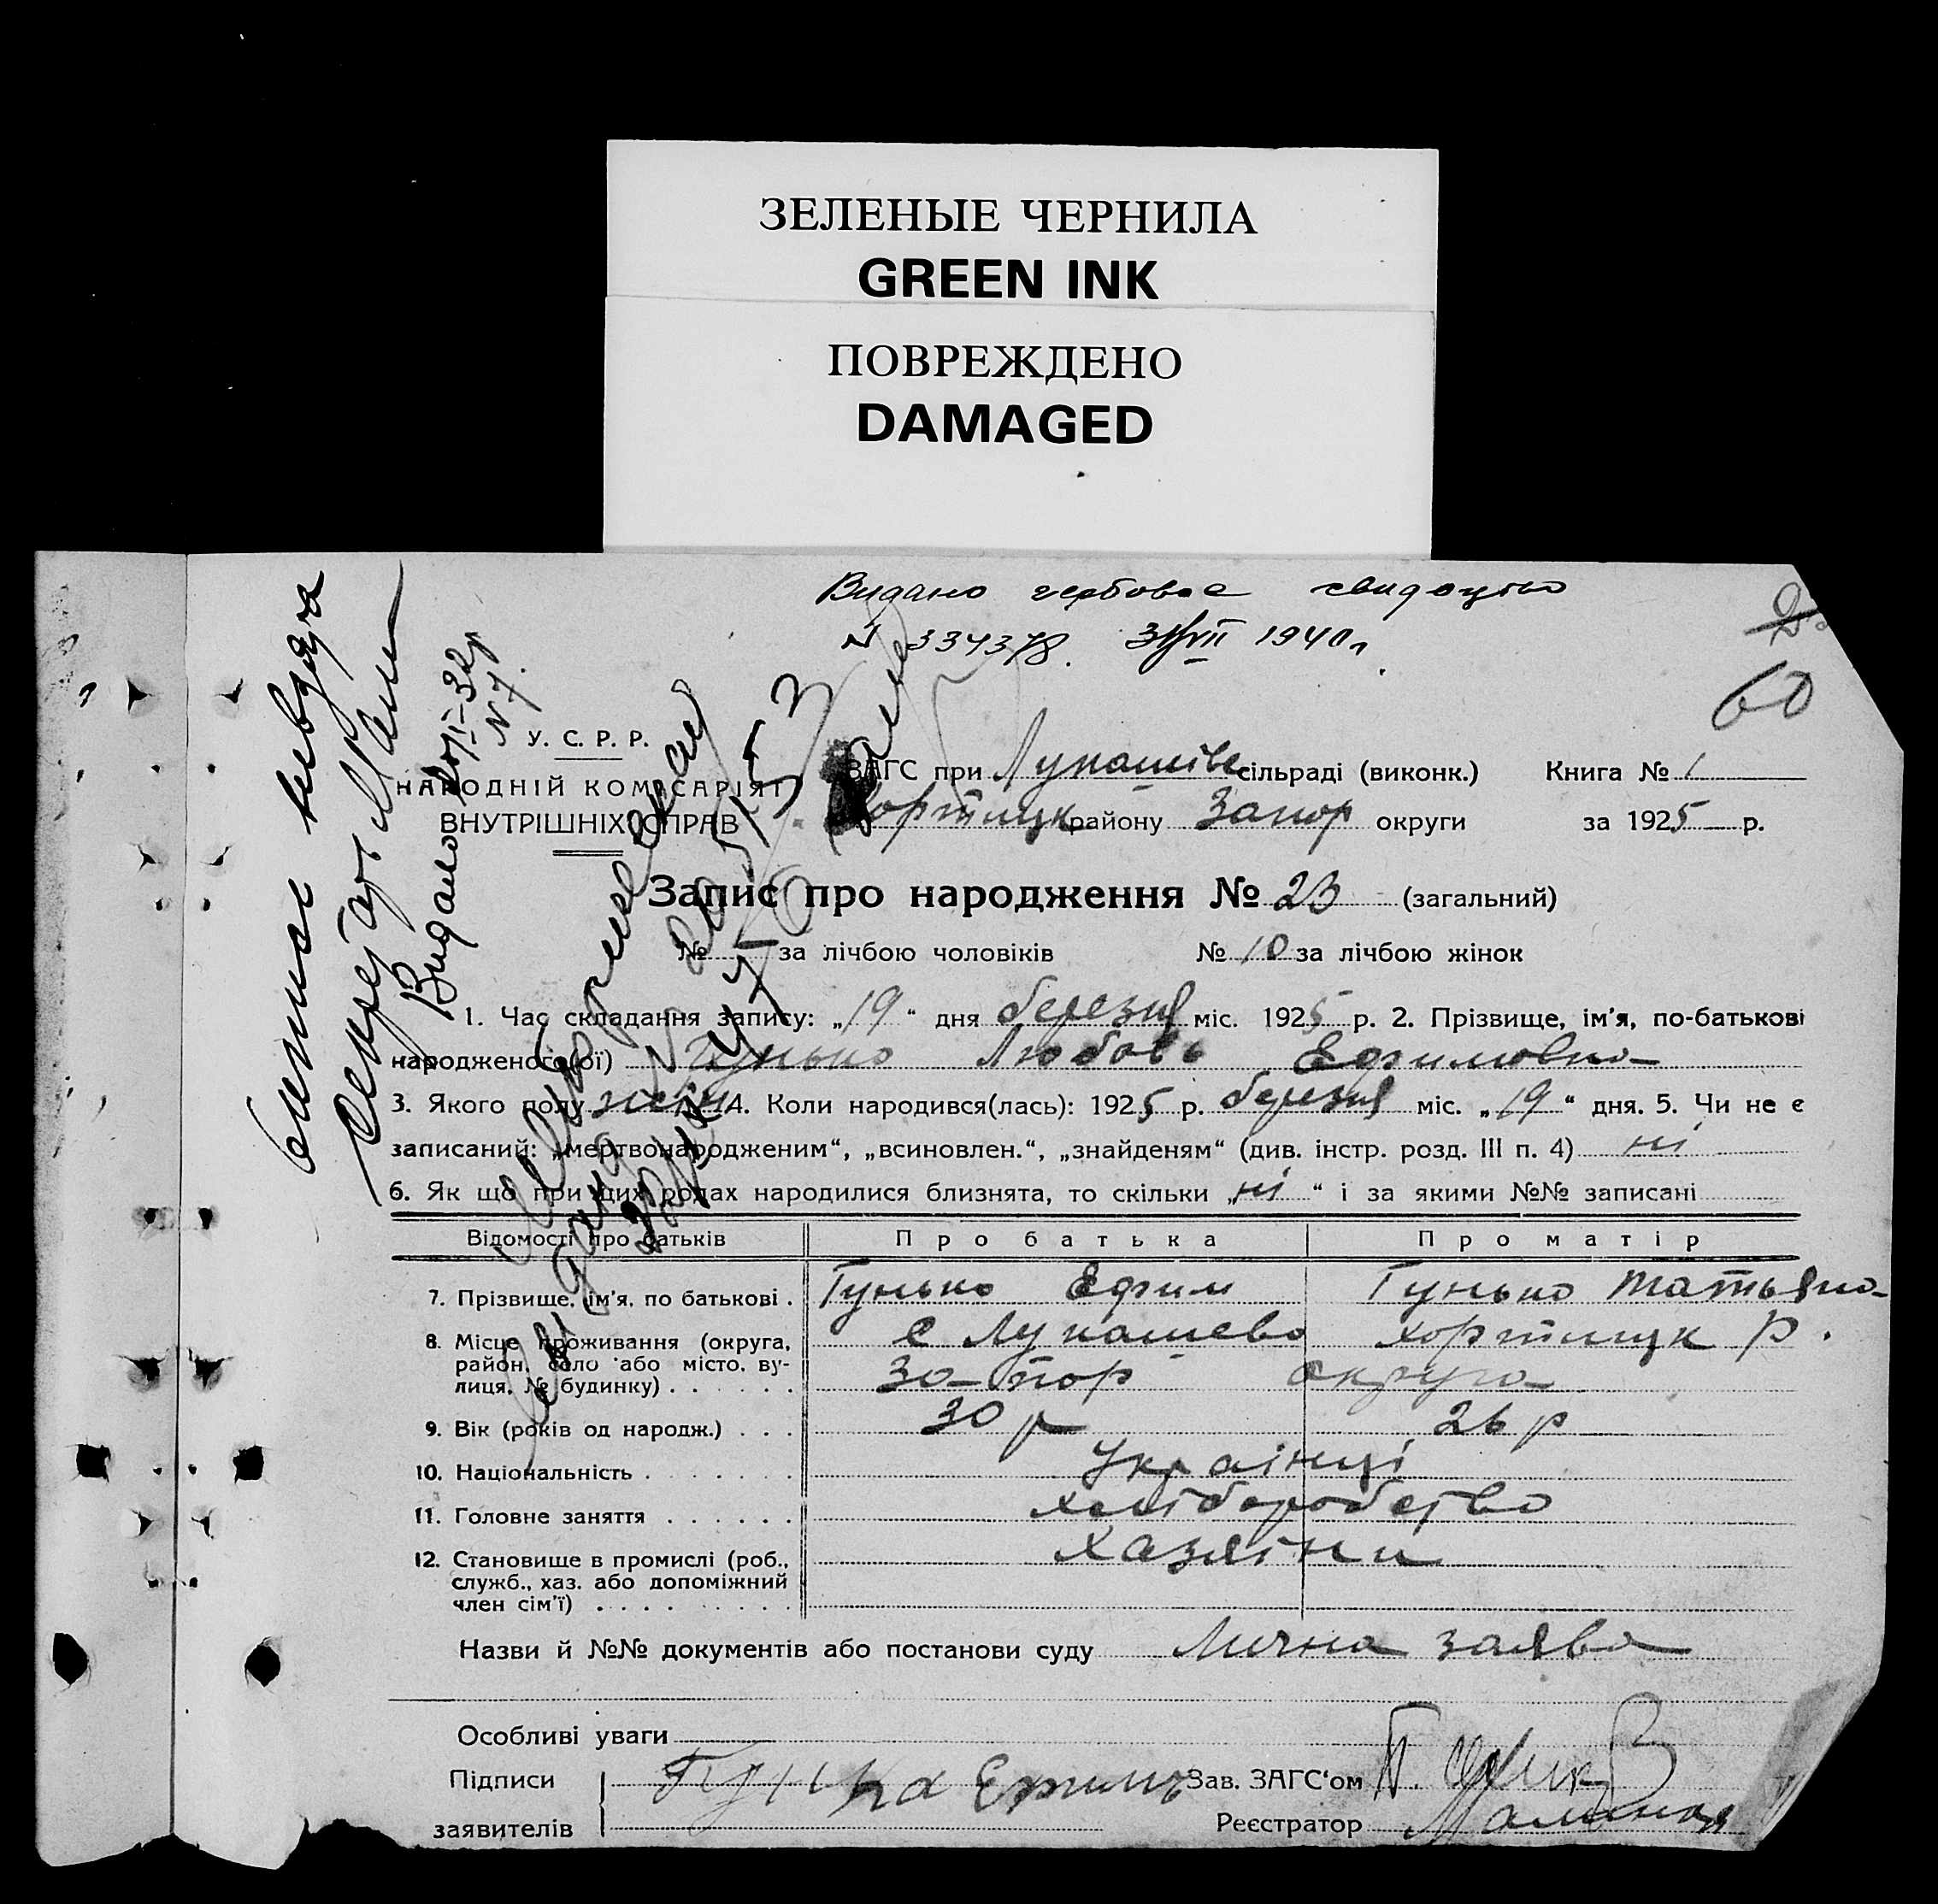 ЗЕЛЕНЫЕ ЧЕРНИЛА
GREEN INK
ПОВРЕЖДЕНО
DAMAGED
Видано гербовое свидоцтво
N 334378. 1940 г.
60
Видано
N 7.
У. С. Р. Р.
НАРОДНІЙ КОМІСАРІЯТ
ВНУТРІШНІХ СПРАВ
ЗАГС при Лукашівс сільраді (виконк.) Книга № 1
Хортицк району Запор округи за 1925 р.
Запис про народження № 23 (загальний)
№ за лічбою чоловіків № 10 за лічбою жінок
1. Час складання запису: „19“ дня березня міс. 1925 р. 2. Прізвище, ім'я, по-батькові
народженого(ої) Гунько Любовь Ефимовна
3. Якого полу жін 4. Коли народився(лась): 1925 р. березня міс. „19“ дня. 5. Чи не є
записаний: „мертвонародженим“, „всиновлен.“, „знайденям“ (див. інстр. розд. III п. 4) ні
6. Як що при цих родах народилися близнята, то скільки „ні“ і за якими №№ записані
Відомості про батьків Про батька Про матір
7. Прізвище, ім'я, по батькові . Гунько Ефим Гунько Татьяна
8. Місце проживання (округа, с Лукашево хортицк р.
район, село або місто, ву- Запор округа
лиця, № будинку) . . . . . .
9. Вік (років од народж.) . . . 30 р 26 р
10. Національність . . . . . . . Українці
11. Головне заняття . . . . . . хліборобство
12. Становище в промислі (роб., хазяїни
служб., хаз. або допоміжний
член сім'ї) . . . . . . . . .
Назви й №№ документів або постанови суду Лична заява
Особливі уваги
Підписи Гунька Ефимъ Зав. ЗАГС'ом
заявителів Реєстратор